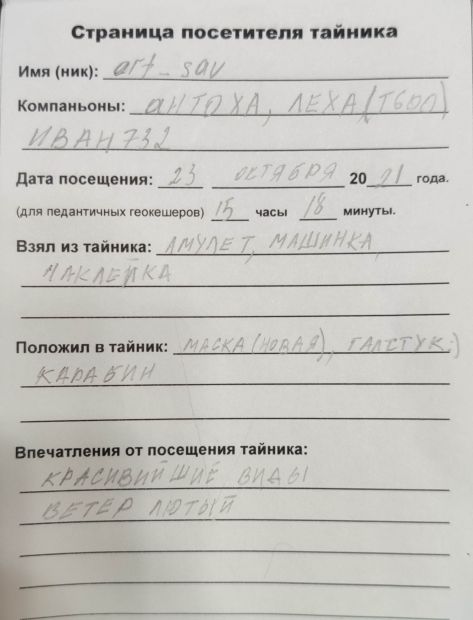 Страница посетителя тайника
Имя (ник): art_sav
Компаньоны: АНТОХА, ЛЕХА (Т600)
ИВАН732
Дата посещения: 23 ОКТЯБРЯ 2021 года.
(для педантичных геокешеров) 15 часы 18 минуты.
Взял из тайника: АМУЛЕТ, МАШИНКА,
НАКЛЕЙКА
Положил в тайник: МАСКА (НОВАЯ), ГАЛСТУК :)
КАРАБИН
Впечатления от посещения тайника:
КРАСИВИЙШИЕ ВИДЫ
ВЕТЕР ЛЮТЫЙ